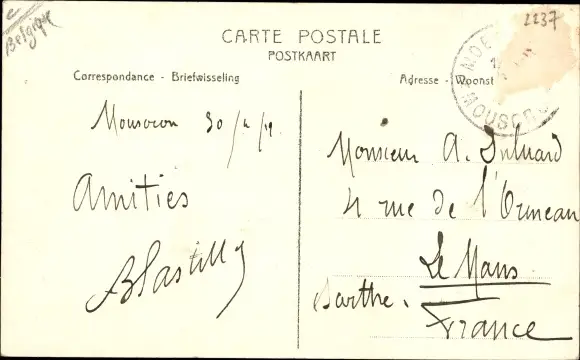 Belgique
2237
CARTE POSTALE
POSTKAART
Correspondance - Briefwisseling
Adresse - Woonst
MOUSCRO
Mouscron 30
Monsieur A.
Amitiés
4 rue de l'Ormeau
Le Mans
Sarthe.
France